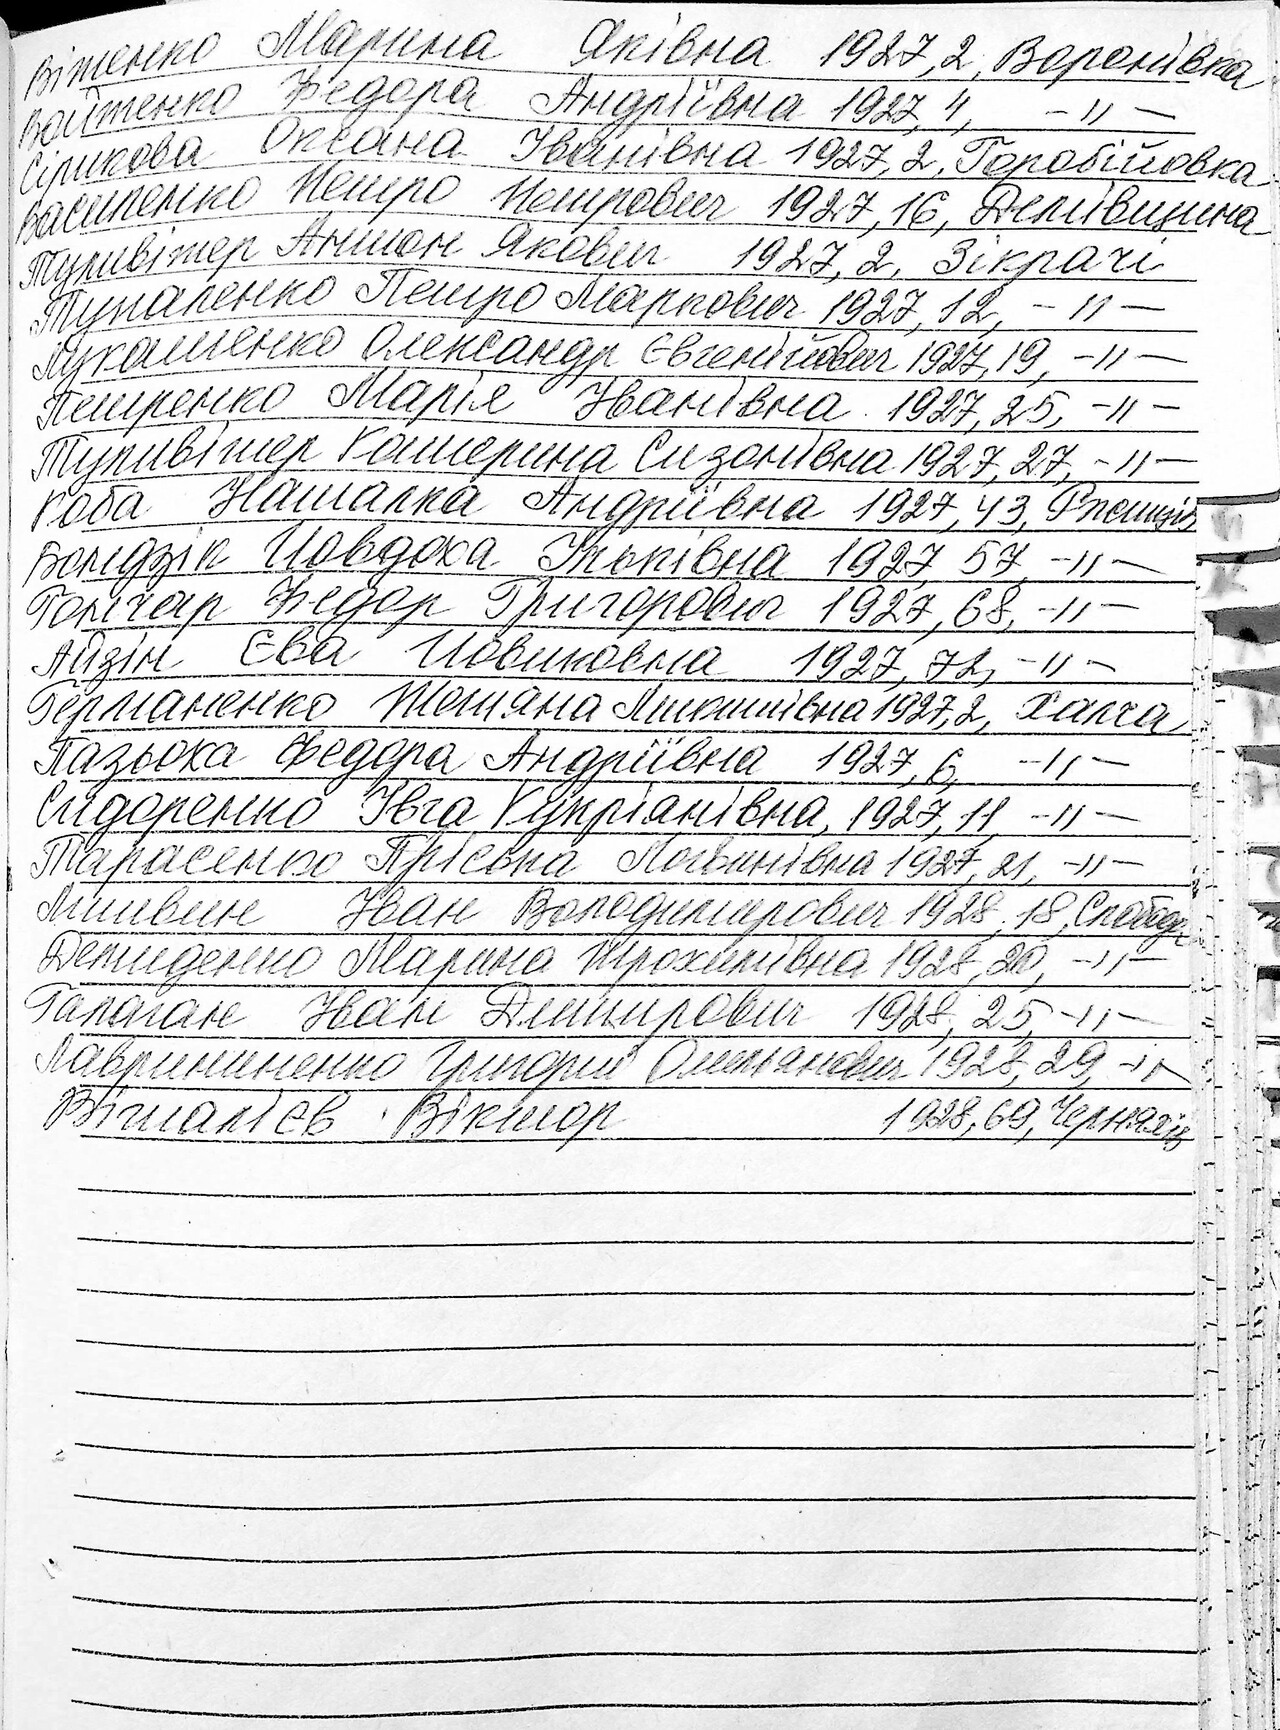 Вітенко Марина Яківна 1927, 2, Воронівка
Войтенко Федора Андріївна 1927, 4, -"-
Сірикова Оксана Іванівна 1927, 2, Горобійовка
Василенко Петро Петрович 1927, 16, Демівщина
Тупивітер Антон Якович 1927, 2, Зікрачі
Тупаленко Петро Маркович 1927, 12, -"-
Лукашенко Олександр Євгенійович 1927, 19, -"-
Петренко Марія Іванівна 1927, 25, -"-
Тупивітер Катерина Сизонівна 1927, 27, -"-
Коба Наталка Андріївна 1927, 43, Ржищів
Йовдоха Ільківна 1927, 57, -"-
Гончар Федор Григорович 1927, 68, -"-
Айзін Єва 1927, 72, -"-
Германенко Тетяна 1927, 2, Халча
Пазьока Федора Андріївна 1927, 6, -"-
Сидоренко Івга Купріянівна, 1927, 11, -"-
Тарасенко Пріська Логвинівна 1927, 21, -"-
Литвин Іван Володимирович 1928, 18, Слобода
Демиденко Марина Трохимівна 1928, 20, -"-
Галаган Іван Дмитрович 1928, 25, -"-
Лавриненко Григорій Омелянович 1928, 29, -"-
Віталієв Віктор 1928, 69, Черняхів